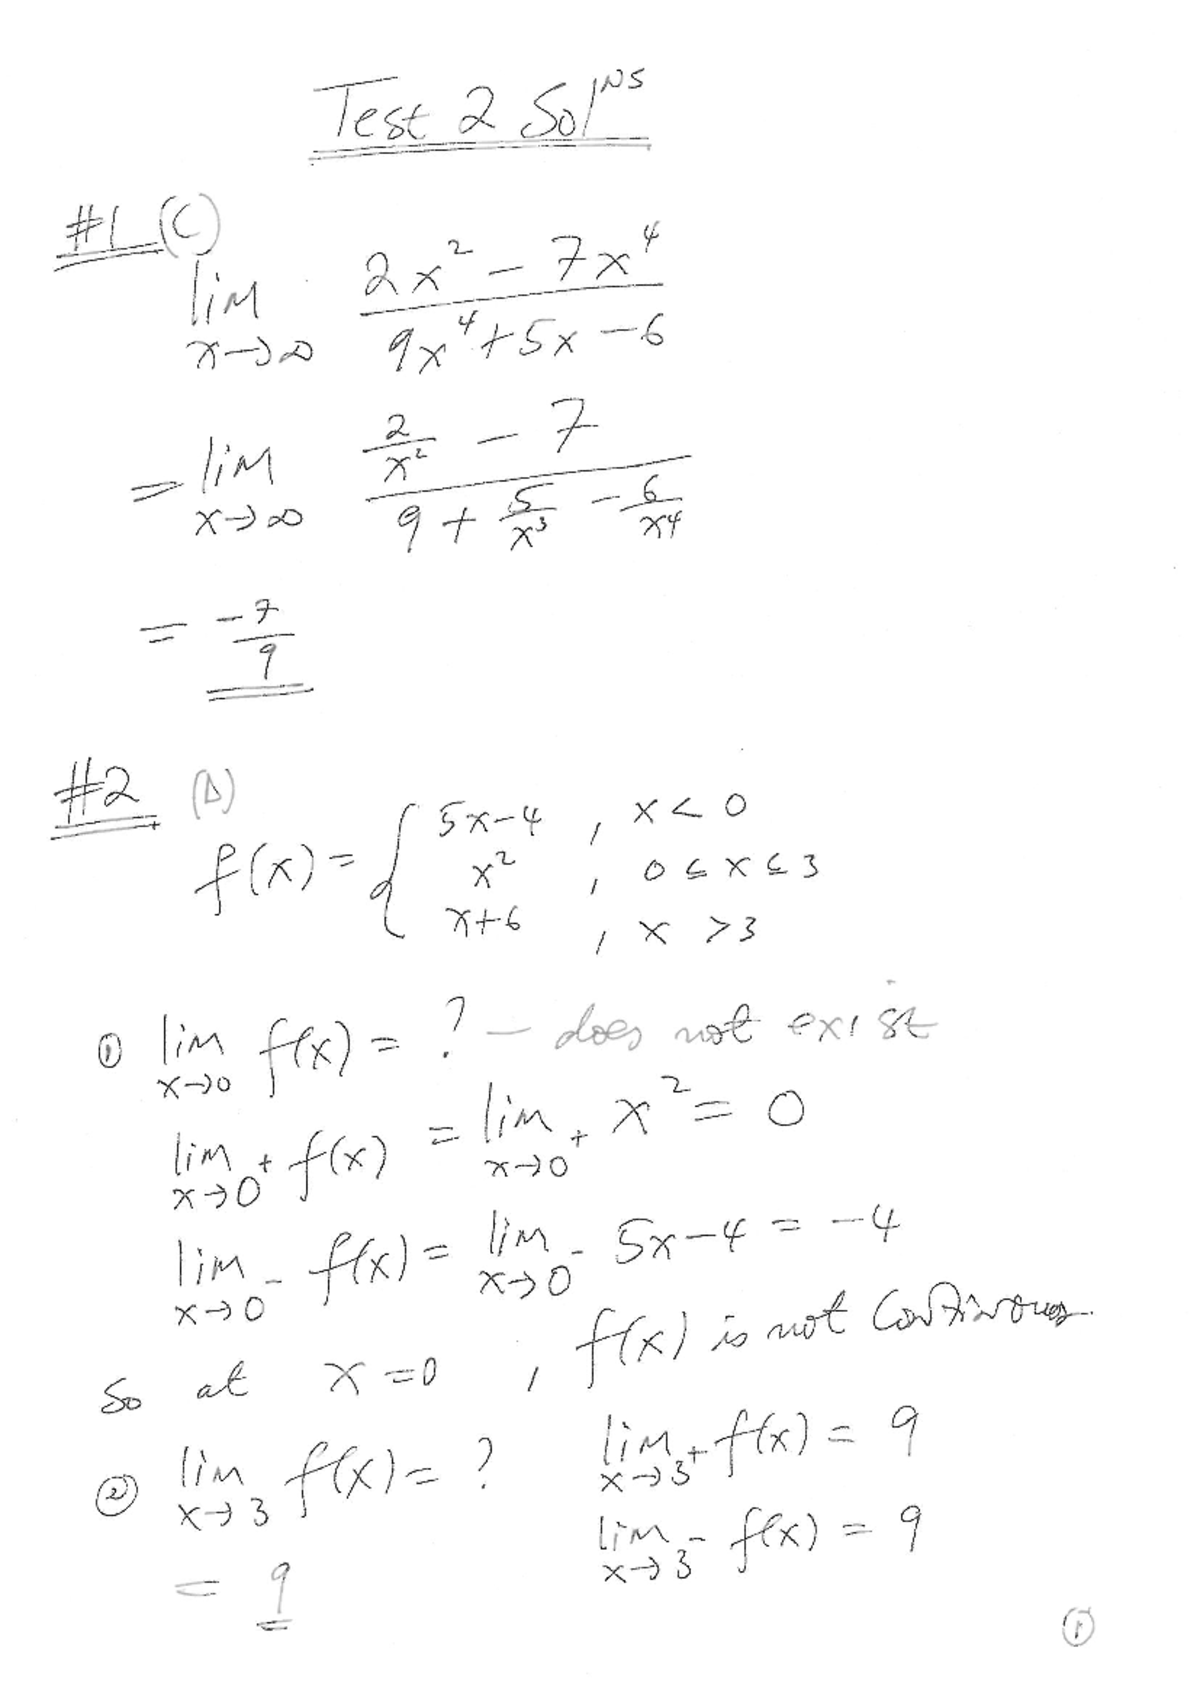 Test 2 Solns
#1 (C)
lim x→∞ (2x² − 7x⁴)/(9x⁴ + 5x − 6)
= lim x→∞ (2/x² − 7)/(9 + 5/x³ − 6/x⁴)
= −7/9
#2 (A)
f(x) = { 5x−4 , x < 0
x² , 0 ≤ x ≤ 3
x+6 , x > 3
① lim x→0 f(x) = ? — does not exist
lim x→0⁺ f(x) = lim x→0⁺ x² = 0
lim x→0⁻ f(x) = lim x→0⁻ 5x−4 = −4
So at x=0 , f(x) is not continuous.
② lim x→3 f(x) = ? lim x→3⁺ f(x) = 9
= 9 lim x→3⁻ f(x) = 9
①